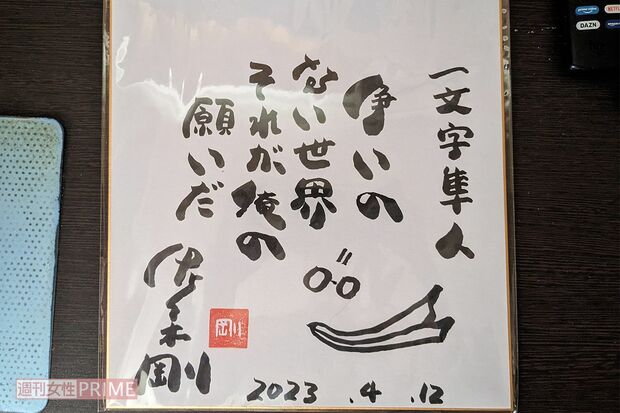 一文字隼人
争いの
ない世界
それが俺の
願いだ
佐々木剛
剛
2023.4.12
週刊女性PRIME
prime video
NETFLIX
DAZN